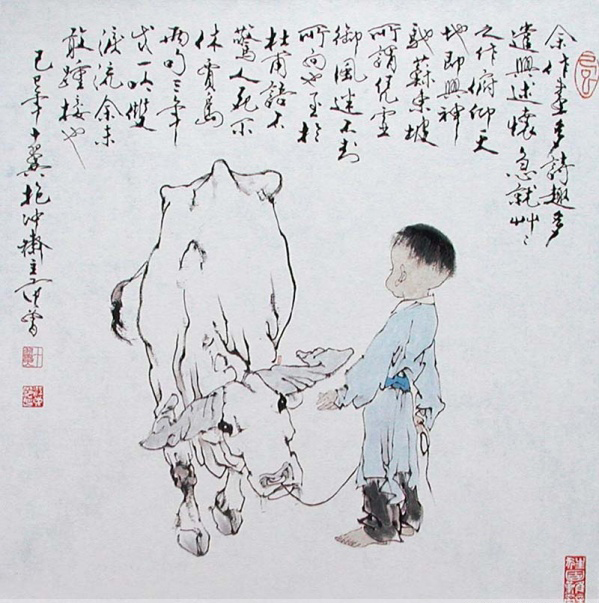 余作畫多詩趣多
遣興述懷急就艸〻
之作俯仰天
地即興神
馳蘇東坡
所謂凭虛
御風迷不知
所向也至於
杜甫語不
驚人死不
休賈島
兩句三年
成一吟雙
淚流余未
敢踵接也
己巳年十翼抱沖齋主范曾